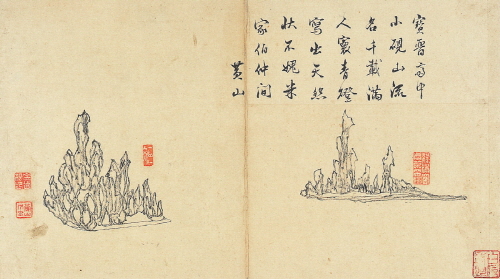 寶晉齋中
小硯山流
名千載滿
人寰青燈
寫出天然
狀不媿米
家伯仲间
黃山